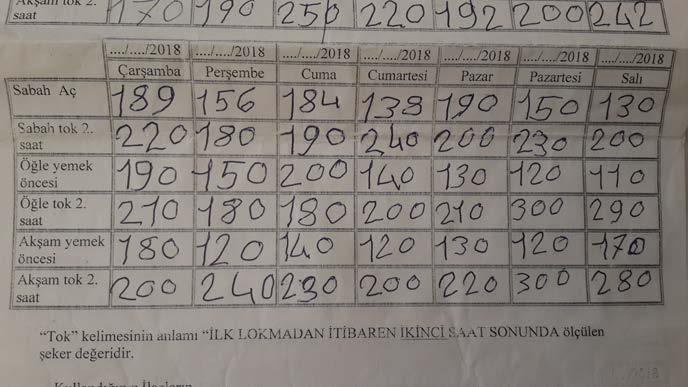 Akşam tok 2. 170 190 250 220 192 200 242
saat
..../..../2018 ..../..../2018 ..../..../2018 ..../..../2018 ..../..../2018 ..../..../2018 ..../..../2018
Çarşamba Perşembe Cuma Cumartesi Pazar Pazartesi Salı
Sabah Aç 189 156 184 138 190 150 130
Sabah tok 2. saat 220 180 190 240 200 230 200
Öğle yemek öncesi 190 150 200 140 130 120 110
Öğle tok 2. saat 210 180 180 200 210 300 290
Akşam yemek öncesi 180 120 140 120 130 120 170
Akşam tok 2. saat 200 240 230 200 220 300 280
“Tok” kelimesinin anlamı “İLK LOKMADAN İTİBAREN İKİNCİ SAAT SONUNDA ölçülen
şeker değeridir.